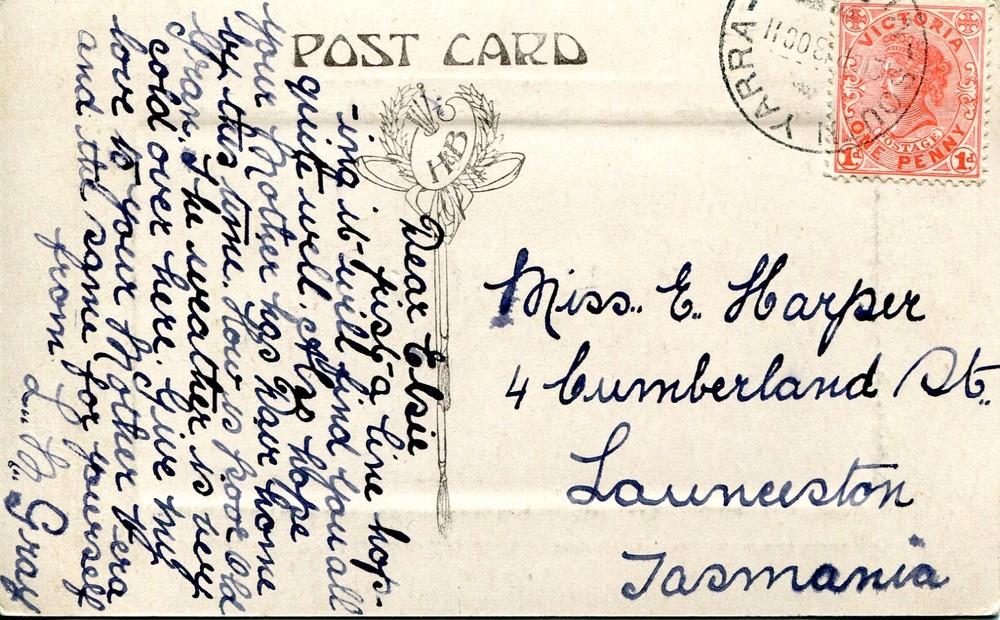 POST CARD
H&B
VICTORIA
POSTAGE
ONE PENNY
1d 1d
YARRA
Dear Elsie
just a line hop-
-ing it will find you all
quite well. Also hope
your Mother has Have home
by this time. How is poor old
Gran. The weather is very
cold over here. Give my
love to your Mother
and the same for yourself
from
L.. B.. Gray
Miss.. E.. Harper
4 Cumberland St..
Launceston
Tasmania